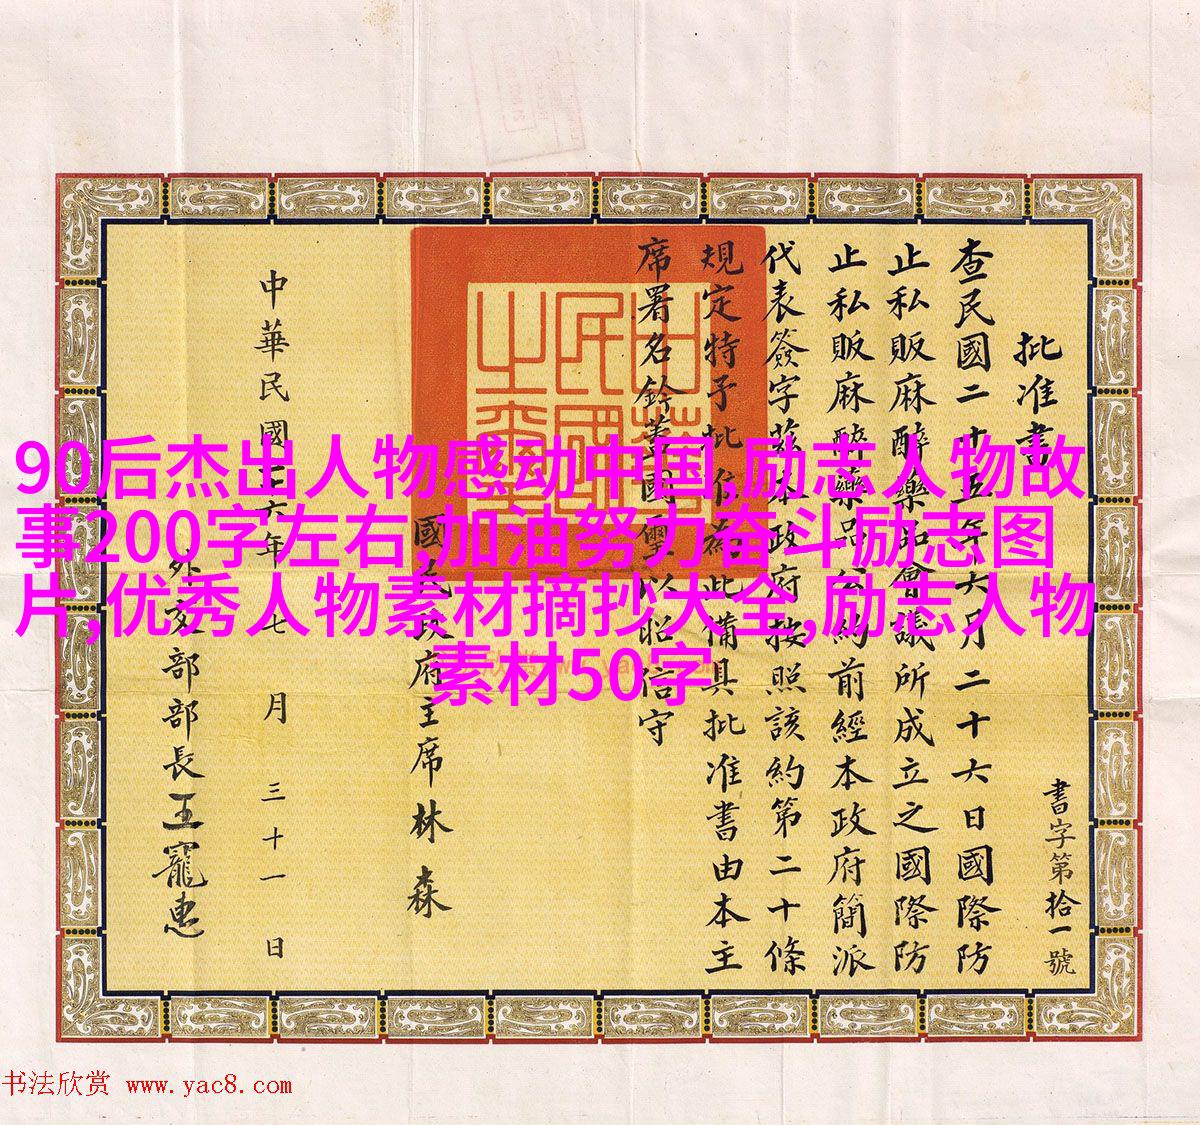 90后杰出人物感动中国,励志人物故
事200字左右,加油努力奋斗励志图
片,优秀人物素材摘抄大全,励志人物
素材50字
書字第拾一號
批准書
查民國二十五年六月二十六日國際防
止私販麻醉藥品會議所成立之國際防
止私販麻醉藥品公約前經本政府簡派
代表簽字茲本政府按照該約第二十條
規定特予批准為此備具批准書由本主
席署名鈐蓋國璽以昭信守
中華民國之璽
國民政府主席林森
中華民國二十六年七月三十一日
外交部部長王寵惠
书法欣赏 www.yac8.com